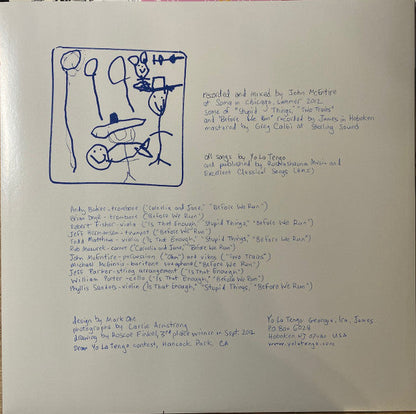 recorded and mixed by John McEntire
at Soma in Chicago, summer 2012
some of "Stupid Things," "Two Trains"
and "Before We Run" recorded by James in Hoboken
mastered by Greg Calbi at Sterling Sound
all songs by Yo La Tengo
and published by Roshashauna Music and
Excellent Classical Songs (BMI)
Andy Baker - trombone ("Cornelia and Jane," "Before We Run")
Brian Drye - trombone ("Before We Run")
Robert Fisher - viola ("Is That Enough," "Stupid Things," "Before We Run")
Jeff Hermanson - trumpet ("Before We Run")
Todd Matthews - violin ("Is That Enough," "Stupid Things," "Before We Run")
Rob Mazurek - cornet ("Cornelia and Jane," "Before We Run")
John McEntire - percussion, ("Ohm") and vibes ("Two Trains")
Michael McGinnis - baritone saxophone ("Before We Run")
Jeff Parker - string arrangement ("Is That Enough")
William Porter - cello ("Is That Enough," "Before We Run")
Phyllis Sanders - violin ("Is That Enough," "Stupid Things," "Before We Run")
design by Mark One
photographs by Carlie Armstrong
drawing by Roscoe Finkel, 3rd place winner in Sept. 2012
Draw Yo La Tengo contest, Hancock Park, CA
Yo La Tengo Georgia, Ira, James
PO Box 6028
Hoboken NJ 07030 USA
www.yolatengo.com